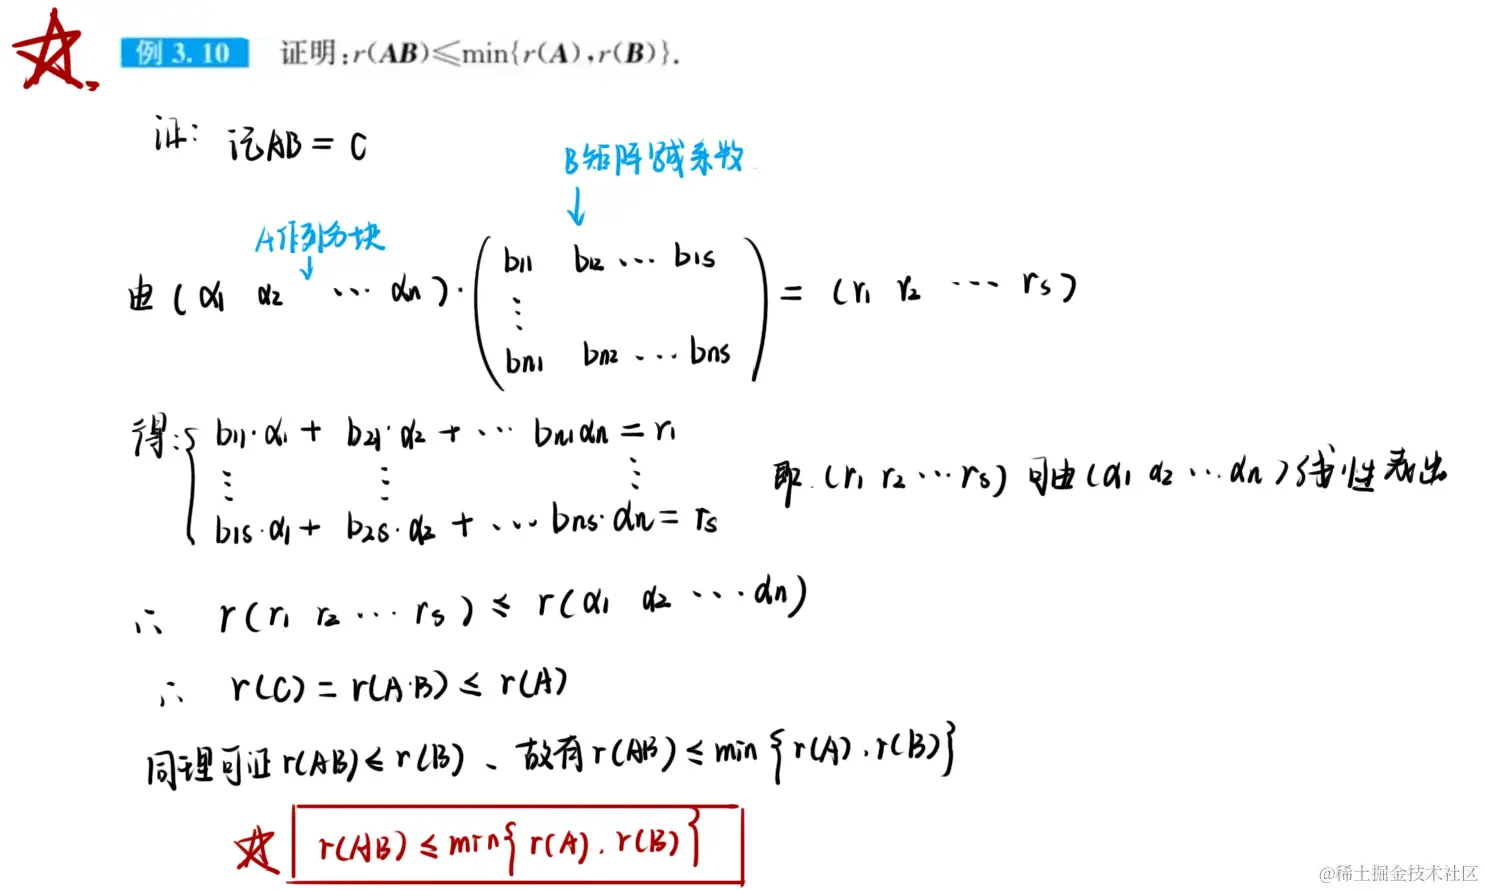 例 3.10 证明:r(AB)≤min{r(A),r(B)}.
证: 记AB = C
B矩阵或系数
A作列分块
由 (α₁ α₂ ⋯ αn)·(b₁₁ b₁₂ ⋯ b₁s ⋮ bn₁ bn₂ ⋯ bns) = (r₁ r₂ ⋯ rs)
得: { b₁₁·α₁ + b₂₁·α₂ + ⋯ bn₁αn = r₁
⋮ ⋮ ⋮
b₁s·α₁ + b₂s·α₂ + ⋯ bns·αn = rs
即 (r₁ r₂ ⋯ rs) 可由 (α₁ α₂ ⋯ αn) 线性表出
∴ r(r₁ r₂ ⋯ rs) ≤ r(α₁ α₂ ⋯ αn)
∴ r(C) = r(A·B) ≤ r(A)
同理可证 r(AB) ≤ r(B)、故有 r(AB) ≤ min{r(A).r(B)}
r(AB) ≤ min{r(A).r(B)}
@稀土掘金技术社区